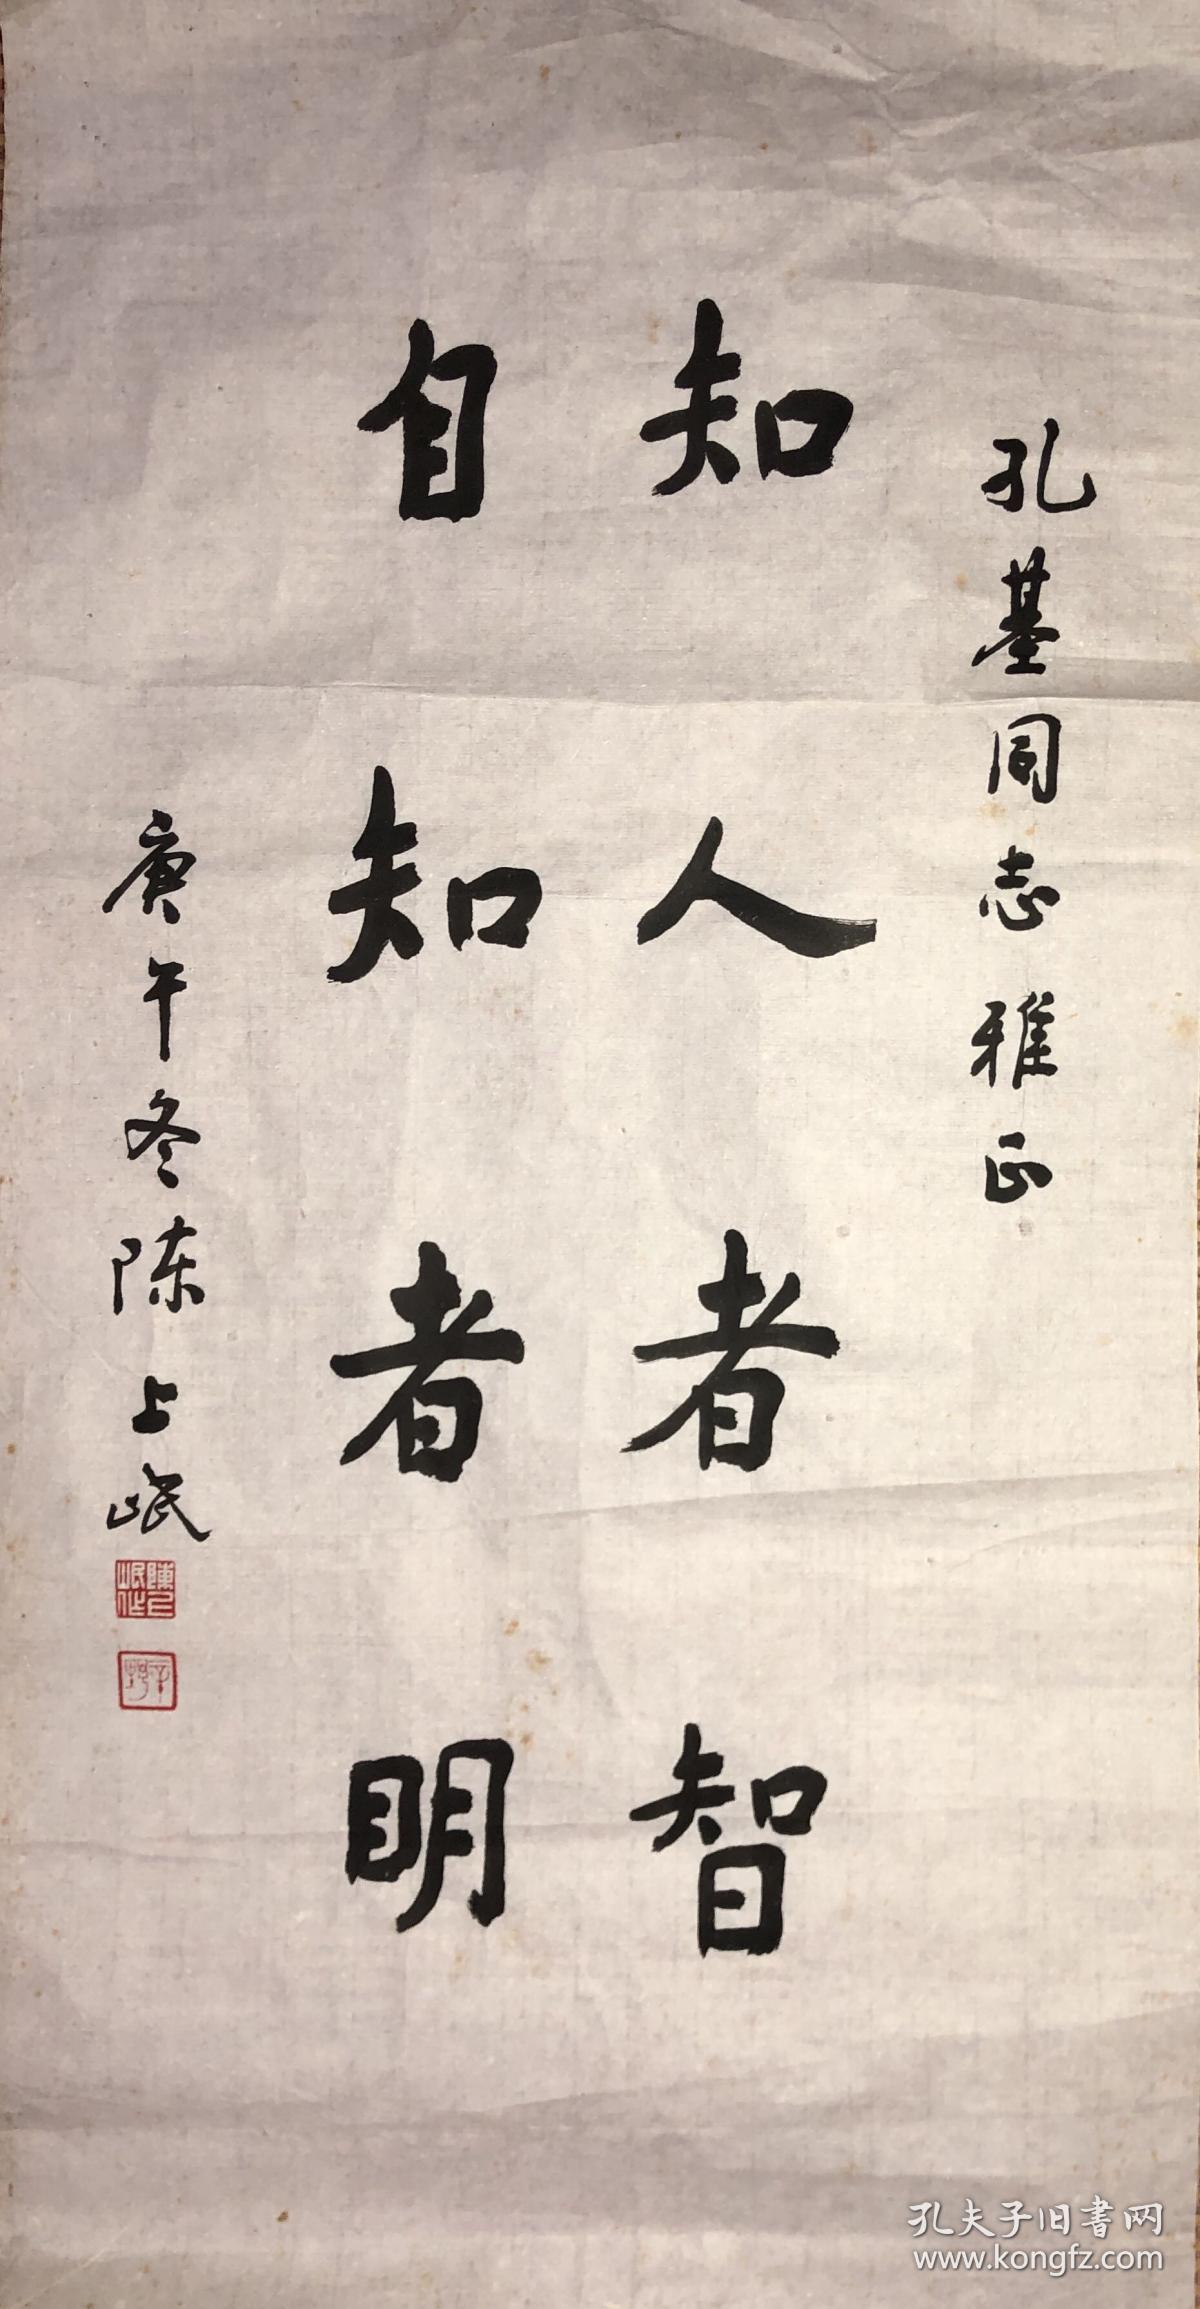 孔基同志雅正
知人者智
自知者明
庚午冬陈上岷
陳上岷作
孔夫子旧書网
www.kongfz.com